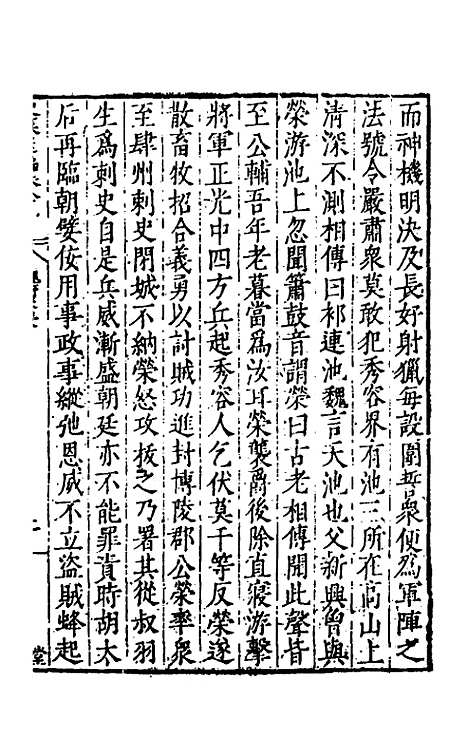 而神機明決及長好射獵每設圍誓衆便爲軍陣之
法號令嚴肅衆莫敢犯秀容界有池三所在高山上
清深不測相傳曰祁連池魏言天池也父新興曾與
榮游池上忽聞簫鼓音謂榮曰古老相傳聞此聲皆
至公輔吾年老暮當爲汝耳榮襲爵後除直寢游擊
將軍正光中四方兵起秀容人乞伏莫干等反榮遂
散畜牧招合義勇以討賊功進封博陵郡公榮率衆
至肆州刺史閉城不納榮怒攻拔之乃署其從叔羽
生爲刺史自是兵威漸盛朝廷亦不能罪責時胡太
后再臨朝嬖佞用事政事縱弛恩威不立盜賊蜂起